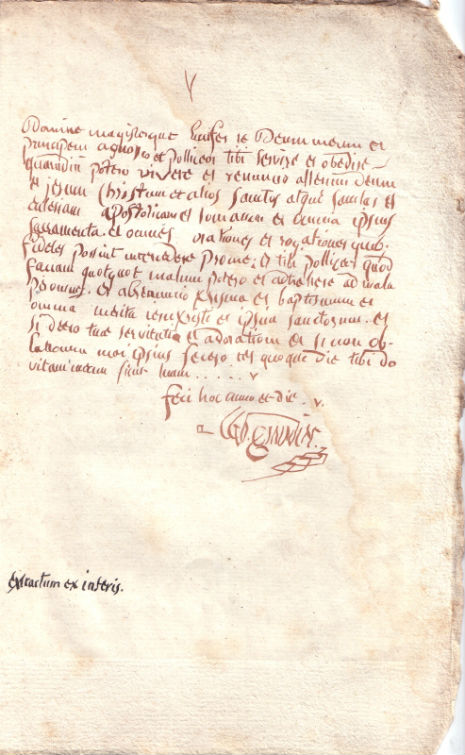 v
Domine magisterque Lucifer te Deum meum et
principem agnosco et polliceor tibi servire et obedire
quandiu potero vivere et renuncio alterium Deum
et jesum Christum et alios sanctos atque sanctas et
eclesiam apostolicam et romanam et omnia ipsius
sacramenta et omnes orationes et rogationes quib.
fideles possint intercedere pro me; et tibi polliceor quod
faciam quotquot malum potero et attrahere ad mala
per omnes. et abrenuncio chrisma et baptismum et
omnia merita et ipsius sanctorum. et
si deero tuae servitutia et adorationi et si non ob-
lationem mei ipsius fecero ter quoque die tibi do
vitam meam sicut tuam . . . . . v
feci hoc anno et die . v.
extractum ex inferis.